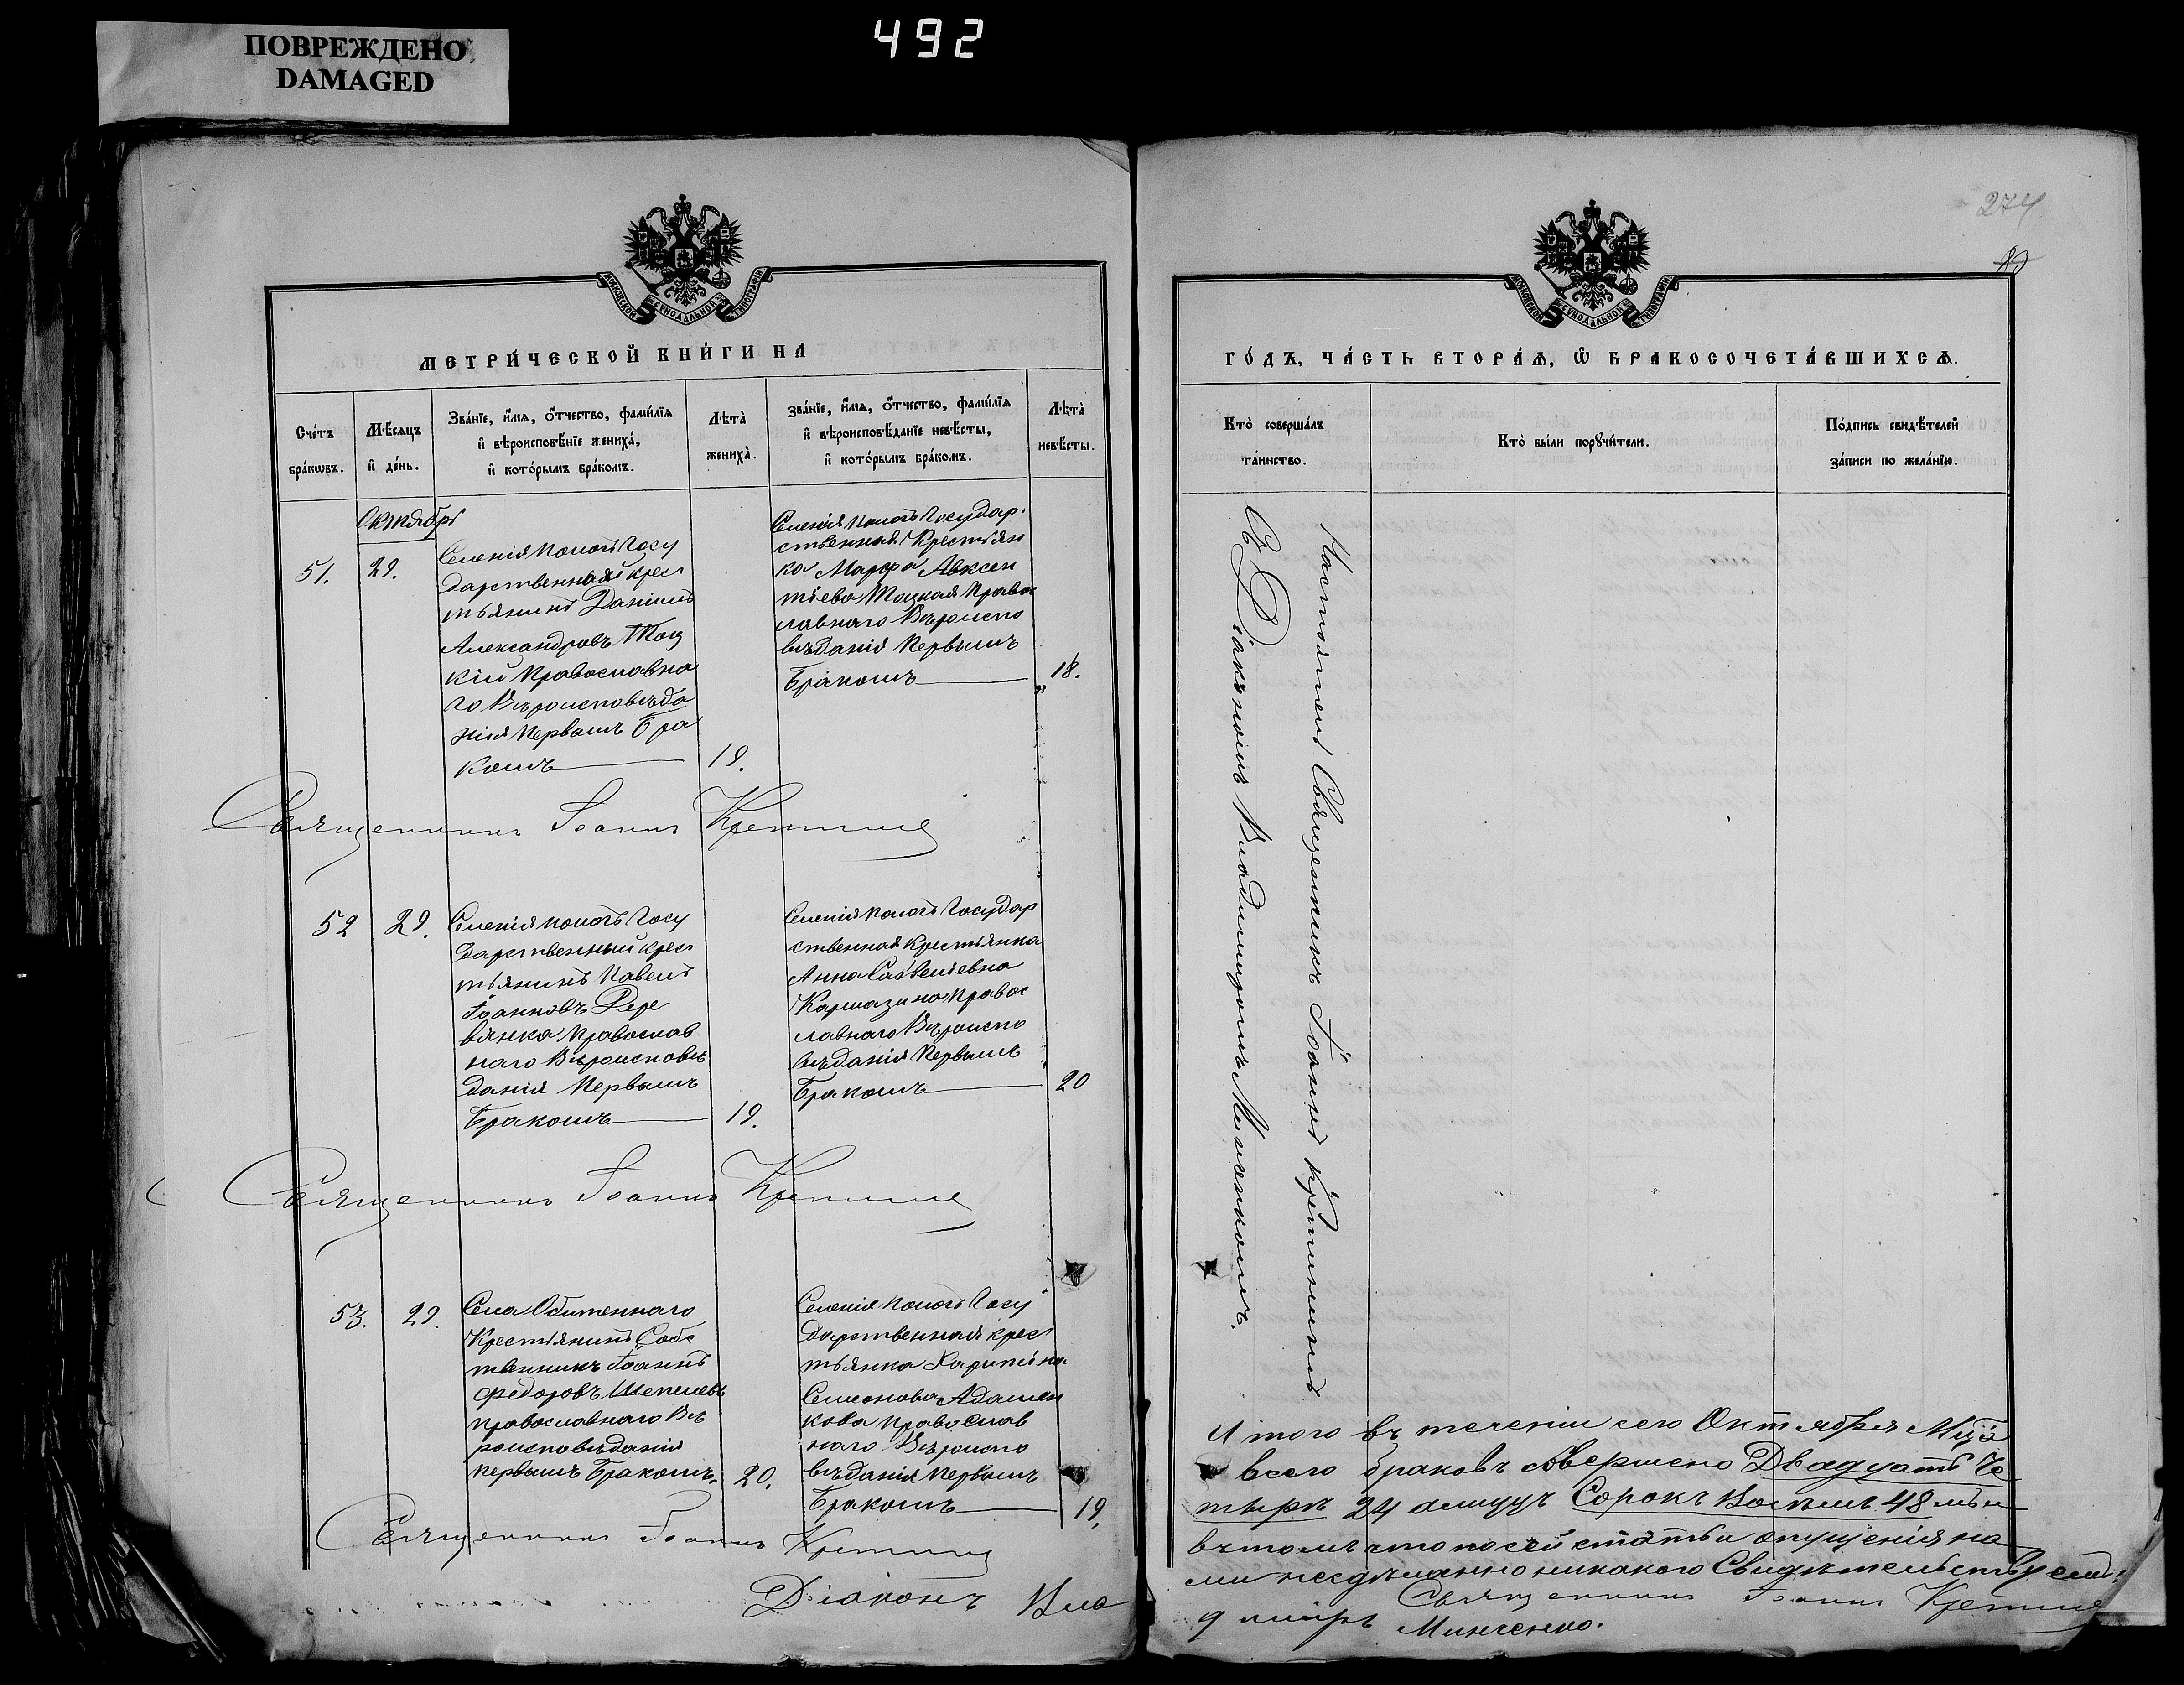 ПОВРЕЖДЕНО
DAMAGED
492
274
МОСКОВСКОЙ СѴНОДАЛЬНОЙ ТИПОГРАФІИ
МЕТРИ́ЧЕСКОЙ КНИ́ГИ НА
Сче́тъ
бра́кѡвъ.
Мѣ́сяцъ
и҆ де́нь.
Зва́нїе, и҆́мѧ, о҆́тчество, фами́лїѧ
и҆ вѣроисповѣ́нїе жениха̀,
и҆ кото́рымъ бра́комъ.
Лѣ́та̀
жениха̀.
Зва́нїе, и҆́мѧ, о҆́тчество, фами́лїѧ
и҆ вѣроисповѣ́данїе невѣ́сты,
и҆ кото́рымъ бра́комъ.
Лѣ́та̀
невѣ́сты.
Октября
51.
29.
Селенія Пологъ Госу
дарственный крес
тьянинъ Даніилъ
Александровъ Тоц
кій Православна
го Вѣроисповѣда
нія Первымъ Бра
комъ
19.
Селенія Пологъ Государ
ственная Крестьян
ка Марфа Авксен
тіева Тоцкая Правос
лавнаго Вѣроиспо
вѣданія Первымъ
Бракомъ
18.
Священникъ Іоаннъ
52
29.
Селенія Пологъ Госу
дарственный крес
тьянинъ Павелъ
Іоанновъ Дере
вянка Православ
наго Вѣроисповѣ
данія Первымъ
Бракомъ
19.
Селенія Пологъ Государ
ственная Крестьянка
Анна Савельевна
Кармазина Правос
лавнаго Вѣроиспо
вѣданія Первымъ
Бракомъ
20
Священникъ Іоаннъ
53.
29.
Села Обитеннаго
Крестьянинъ Собс
твенникъ Іоаннъ
Федоровъ Шепелевъ
Православнаго Вѣ
роисповѣданія
Первымъ Бракомъ.
20.
Селенія Пологъ Госу
дарственная крес
тьянка Харитина
Семенова Адамен
кова Православ
наго
вѣданія Первымъ
Бракомъ
19.
Священникъ Іоаннъ
Діаконъ Вла
МОСКОВСКОЙ СѴНОДАЛЬНОЙ ТИПОГРАФІИ
ГО́ДЪ, ЧА́СТЬ ВТОРА́Ѧ, Ѽ БРАКОСОЧЕТА́ВШИХСѦ.
Кто̀ соверша́лъ
та́инство.
Кто̀ бы́ли порꙋчи́тели.
По́дпись свидѣ́телей
за́писи по жела́нїю.
Настоятель Священникъ Іоаннъ
Съ Діакономъ Владимиромъ Минченкомъ.
Итого въ теченіи сего Октября Мца
всего браковъ совершено Двадцать Че
тыре 24 а лицъ Сорокъ Восемь 48 мы и
въ томъ что по сей статьи опущенія на
ми несдѣланно никакого
Священникъ Іоаннъ
диміръ Минченко.